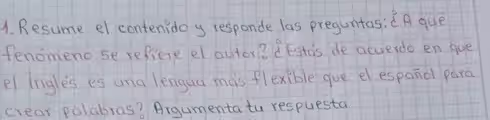 1. Resume el contenido y responde las preguntas: ¿A qué
fenómeno se refiere el autor? ¿Estás de acuerdo en que
el inglés es una lengua más flexible que el español para
crear palabras? Argumenta tu respuesta